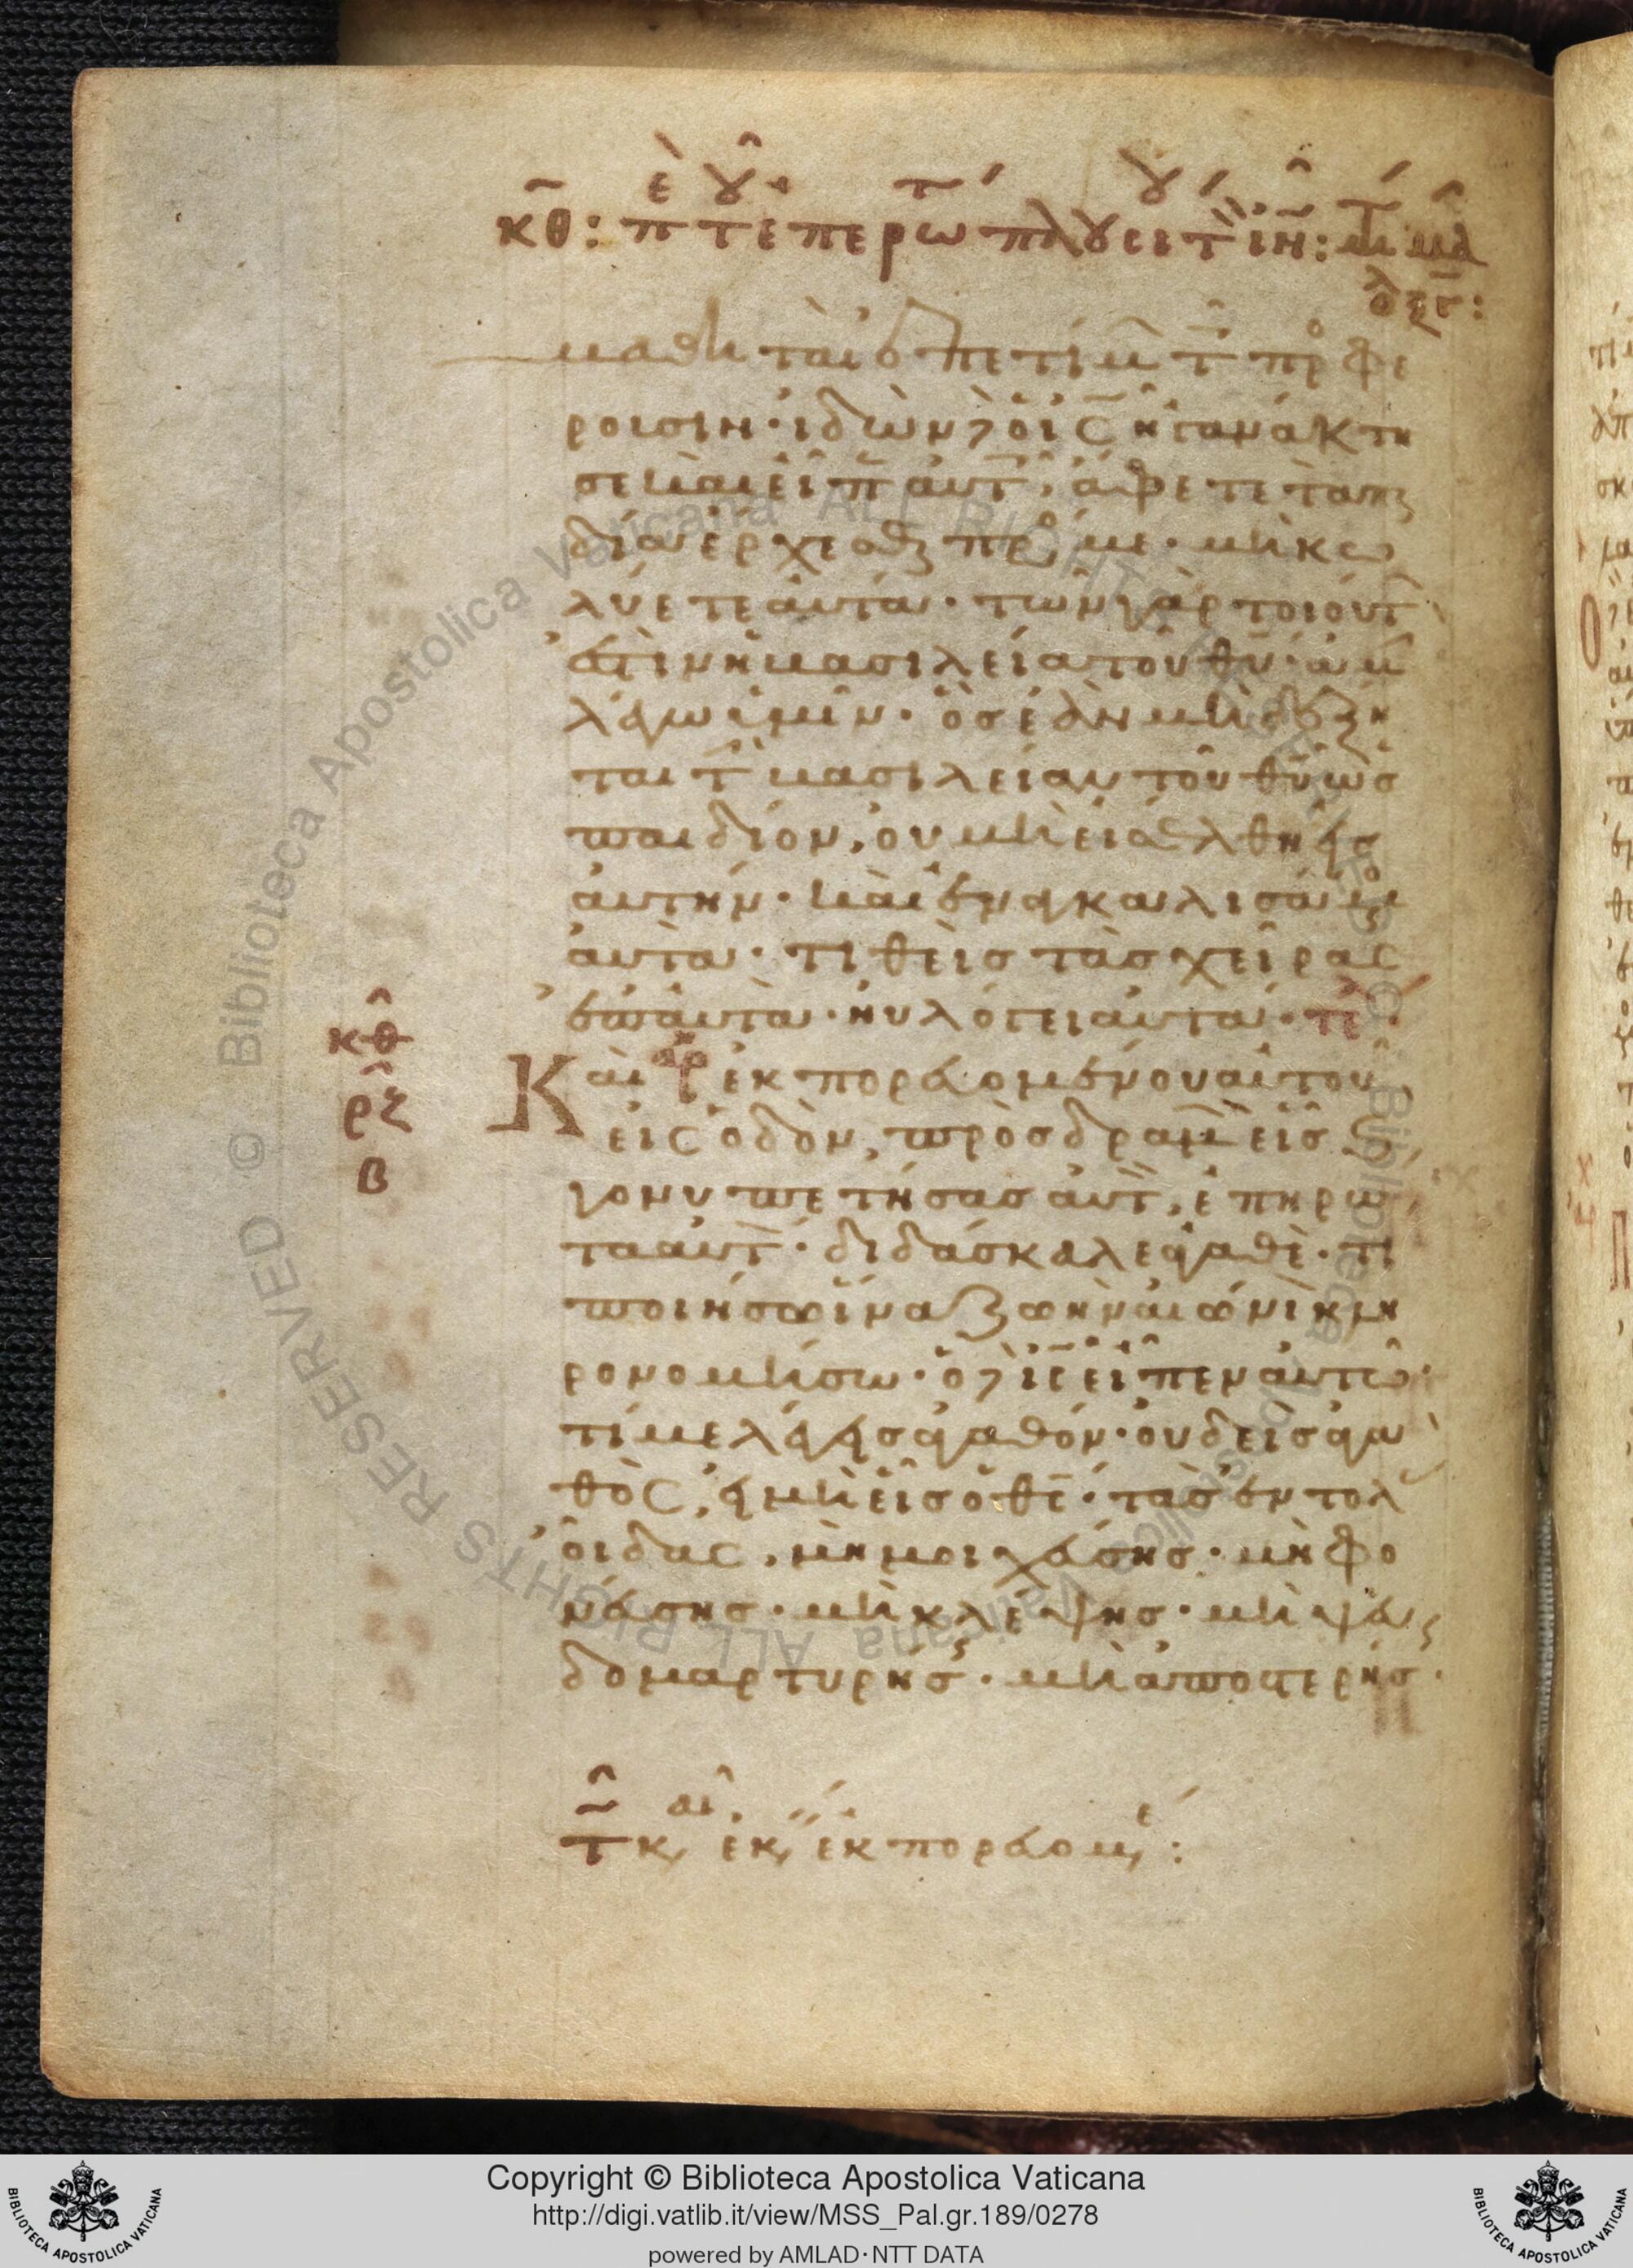 κθ: π τε περ ὲ ου̂ ἐπερωτ πλουσι τ ιν:
μαθηταὶ ἐπετίμ τ προσφε
ρουσιν· ἰδὼν δὲ ὁ ις ἠγανάκτη
σε καὶ εἶπ αὐτ, ἄφετε τὰ παι
δία ἔρχεσθαι πρό με· μὴ κω
λύετε αὐτά· τῶν γὰρ τοιούτ
ἐστιν ἡ βασιλεία τοῦ θυ· ἀμ
λέγω ὑμῖν· ὃς ἐὰν μὴ δέξη
ται τ βασιλείαν τοῦ θυ ὡς
παιδίον, οὐ μὴ εἰσέλθη εἰς
αὐτήν· καὶ ἐναγκαλισάμεν
αὐτὰ· τιθεὶς τὰς χεῖρας
ἐπ' αὐτὰ· ηὐλόγει αὐτά· τε
Καὶ ἐκπορευομένου αὐτοῦ
εἰς ὁδὸν, προσδραμ εἷς καὶ
γονυπετήσας αὐτ, ἐπηρώ
τα αὐτ· διδάσκαλε ἀγαθὲ· τί
ποιήσω ἵνα ζωὴν αἰώνιον κλη
ρονομήσω· ὁ δὲ ις εἶπεν αὐτῶ·
τί με λέγεις ἀγαθόν· οὐδεὶς ἀγα
θὸς, εἰ μὴ εἷς ὁ θς· τὰς ἐντολ
οἶδας, μὴ μοιχεύσης· μὴ φο
νεύσης· μὴ κλέψης· μὴ ψευ
δομαρτυρήσ· μὴ ἀποστερήσ·
κθ
ρζ
β
τ κ, ἐκ, ἐκπορευομ:
Copyright © Biblioteca Apostolica Vaticana
http://digi.vatlib.it/view/MSS_Pal.gr.189/0278
powered by AMLAD·NTT DATA
BIBLIOTECA APOSTOLICA VATICANA
BIBLIOTECA APOSTOLICA VATICANA
© Biblioteca Apostolica Vaticana ALL RIGHTS RESERVED